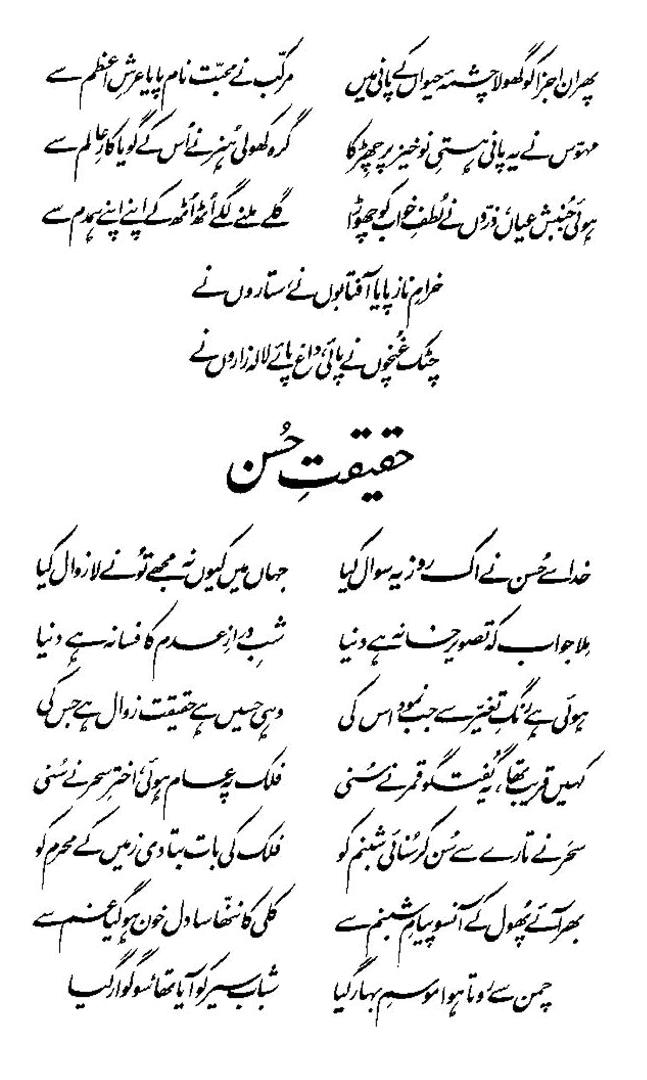 پھران اجزا کو گھولا چشمۂ حیواں کے پانی میں مرکّب نے محبّت نام پایا عرشِ اعظم سے
مہوّس نے یہ پانی ہستیِ نوخیز پر چھڑکا گرہ کھولی ہُنر نے اُس کے گویا کارِ عالم سے
ہوئی جُنبش عیاں، ذرّوں نے لُطفِ خواب کو چھوڑا گلے ملنے لگے اُٹھ اُٹھ کے اپنے اپنے ہمدم سے
خرامِ ناز پایا آفتابوں نے، ستاروں نے
چٹک غُنچوں نے پائی، داغ پائے لالہ زاروں نے
حقیقتِ حُسن
خدا سے حُسن نے اک روز یہ سوال کیا جہاں میں کیوں نہ مجھے تُو نے لازوال کیا
مِلا جواب کہ تصویر خانہ ہے دنیا شبِ درازِ عدم کا فسانہ ہے دنیا
ہوئی ہے رنگِ تغیّر سے جب نمود اس کی وہی حسیں ہے حقیقت زوال ہے جس کی
کہیں قریب تھا، یہ گُفتگو قمر نے سُنی فلک پہ عام ہوئی، اخترِ سحر نے سُنی
سحَر نے تارے سے سُن کر سُنائی شبنم کو فلک کی بات بتا دی زمیں کے محرم کو
بھر آئے پھُول کے آنسو پیامِ شبنم سے کلی کا ننھّا سا دل خون ہو گیا غم سے
چمن سے روتا ہوا موسمِ بہار گیا شباب سیر کو آیا تھا، سوگوار گیا